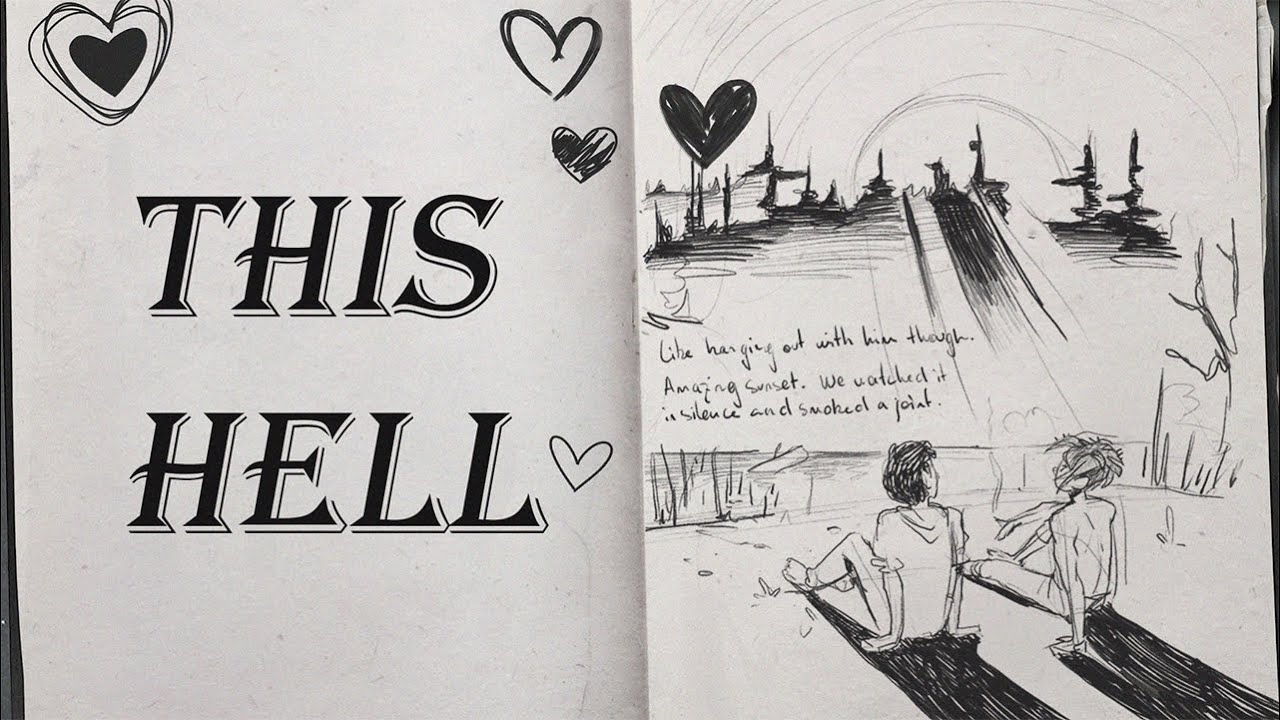 THIS
HELL
Like hanging out with him though.
Amazing sunset. We watched it
in silence and smoked a joint.